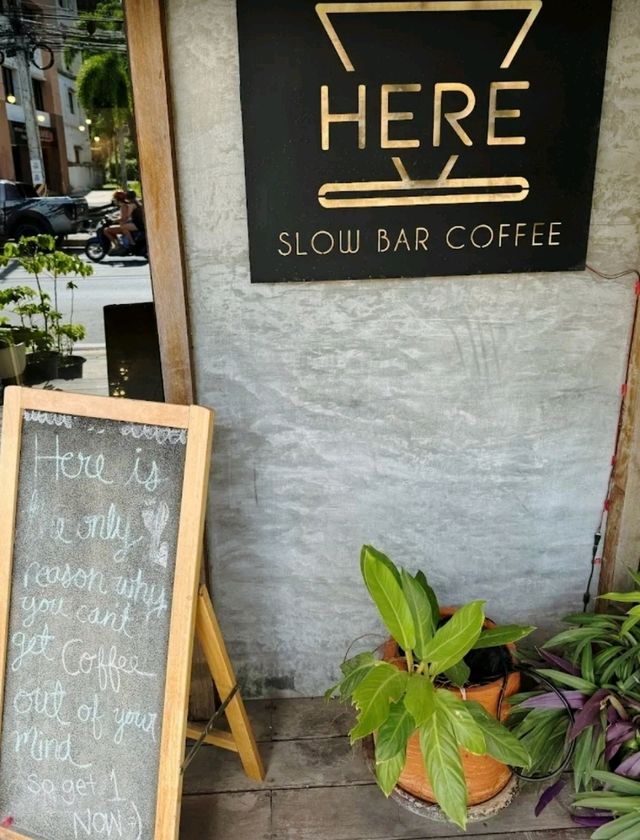 HERE
SLOW BAR COFFEE
Here is
the only
reason why
you can't
get Coffee
out of your
mind
so get 1
NOW :)